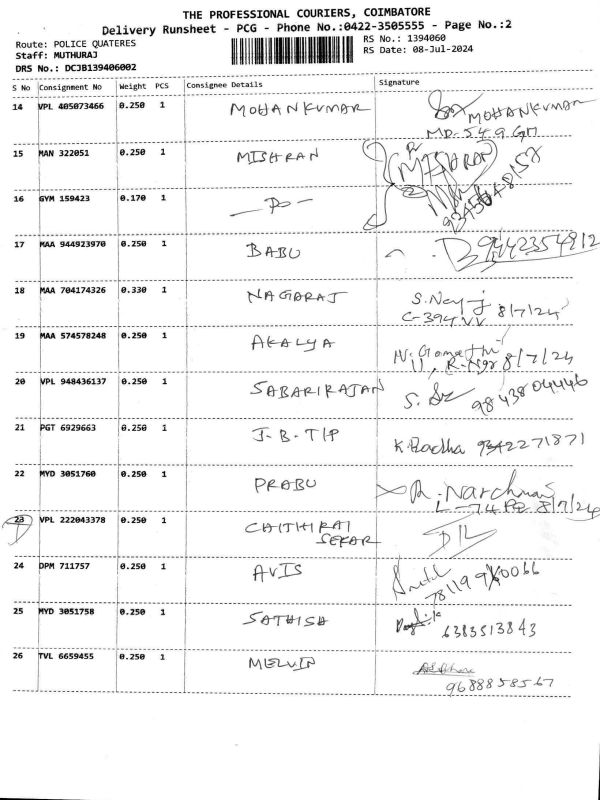 THE PROFESSIONAL COURIERS, COIMBATORE
Delivery Runsheet - PCG - Phone No.:0422-3505555 - Page No.:2
Route: POLICE QUATERES
RS No.: 1394060
Staff: MUTHURAJ
RS Date: 08-Jul-2024
DRS No.: DCJB139406002
S No Consignment No Weight PCS Consignee Details Signature
14 VPL 405073466 0.250 1 MOHANKUMAR MOHANKUMAR
MD-549 GH
15 MAN 322051 0.250 1 MISHRAN MISHRAN
16 GYM 159423 0.170 1 -Do-
17 MAA 944923970 0.250 1 BABU 9442354912
18 MAA 704174326 0.330 1 NAGARAJ S.Nagaraj
C-394 VV 8/7/24
19 MAA 574578248 0.250 1 AKALYA N. Gomathi
11, R.Ngr 8/7/24
20 VPL 948436137 0.250 1 SABARIRAJAN S. 9843804446
21 PGT 6929663 0.250 1 J-B-TIP K.Radha 9342271871
22 MYD 3051760 0.250 1 PRABU
L-74 8/7/24
23 VPL 222043378 0.250 1 CHITHIRAI
SEKAR
D/L
24 DPM 711757 0.250 1 AVIS
25 MYD 3051758 0.250 1 SATHISH 6383513843
26 TVL 6659455 0.250 1 MELVIN
9688858567